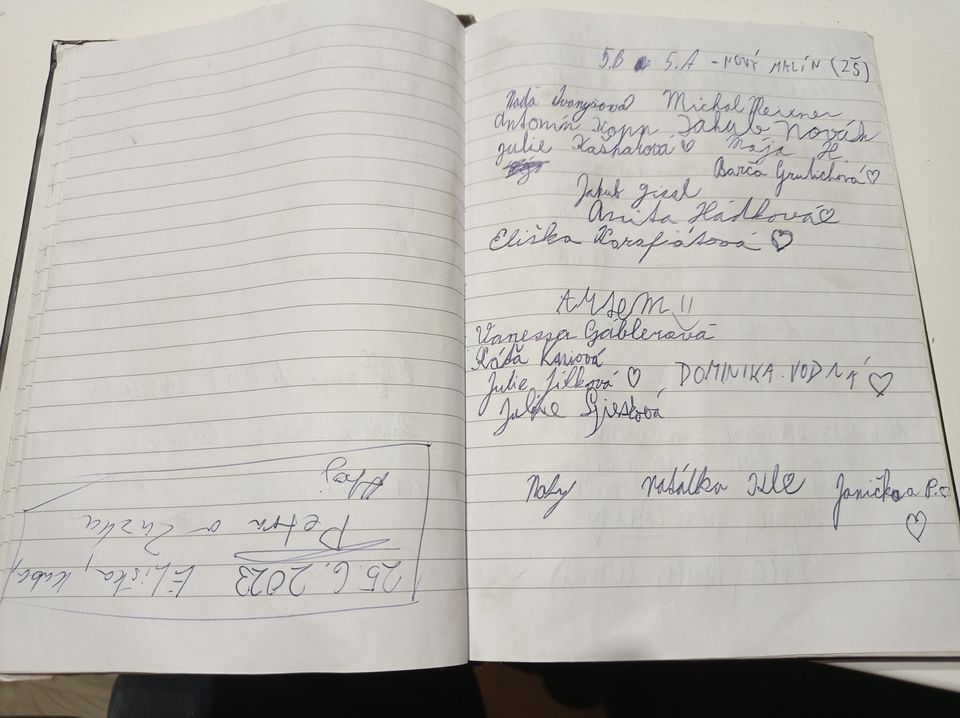 25.6.2023 Eliška, Kuba,
Petra a Zuzka
Ahoj
5.B 5.A - NOVÝ MALÍN (ZŠ)
Naďa Michal
Antonín Kopp Jakub Novák
Julie Kašparová ♡ Maja H
Barča Grulichová ♡
Jakub
Anita Hádková ♡
Eliška Karafiátová ♡
Vanessa Gáblerová
Káťa
Julie Jílková ♡ DOMINIKA VODNÁ ♡
Julie
Naty Natálka Janička P. ♡
♡